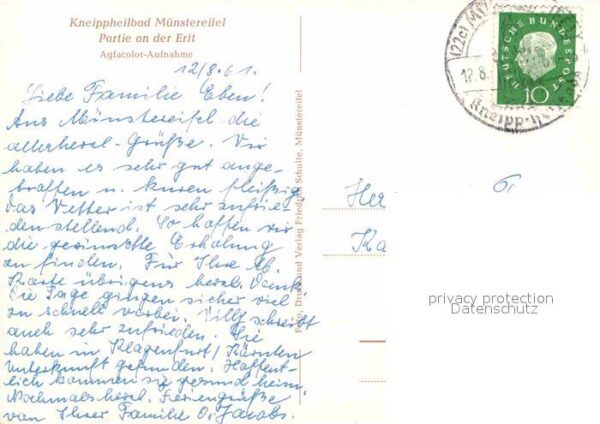 Kneippheilbad Münstereifel
Partie an der Erft
Agfacolor-Aufnahme
12/8.61.
Liebe Familie Eben!
Aus Münstereifel die
allerherzl. Grüße. Wir
haben es sehr gut ange-
troffen u. kuren fleißig
das Wetter ist sehr zufrie-
denstellend. So hoffen wir
die gewünschte Erholung
zu finden. Für Ihre lb.
Karte übrigens herzl. Dank.
Die Tage gingen sicher viel
zu schnell vorbei. Willy schreibt
auch sehr zufrieden. Sie
haben in Klagenfurt/Kärnten
Unterkunft gefunden. Hoffent-
lich kommen sie gesund heim.
Nochmals herzl. Feriengrüße
von Ihrer Familie O. Jacobs.
Foto, Druck und Verlag Friedrich Schulte, Münstereifel
(22c)
12.8.
Kneipp
DEUTSCHE BUNDESPOST
10
Her
Ka
privacy protection
Datenschutz